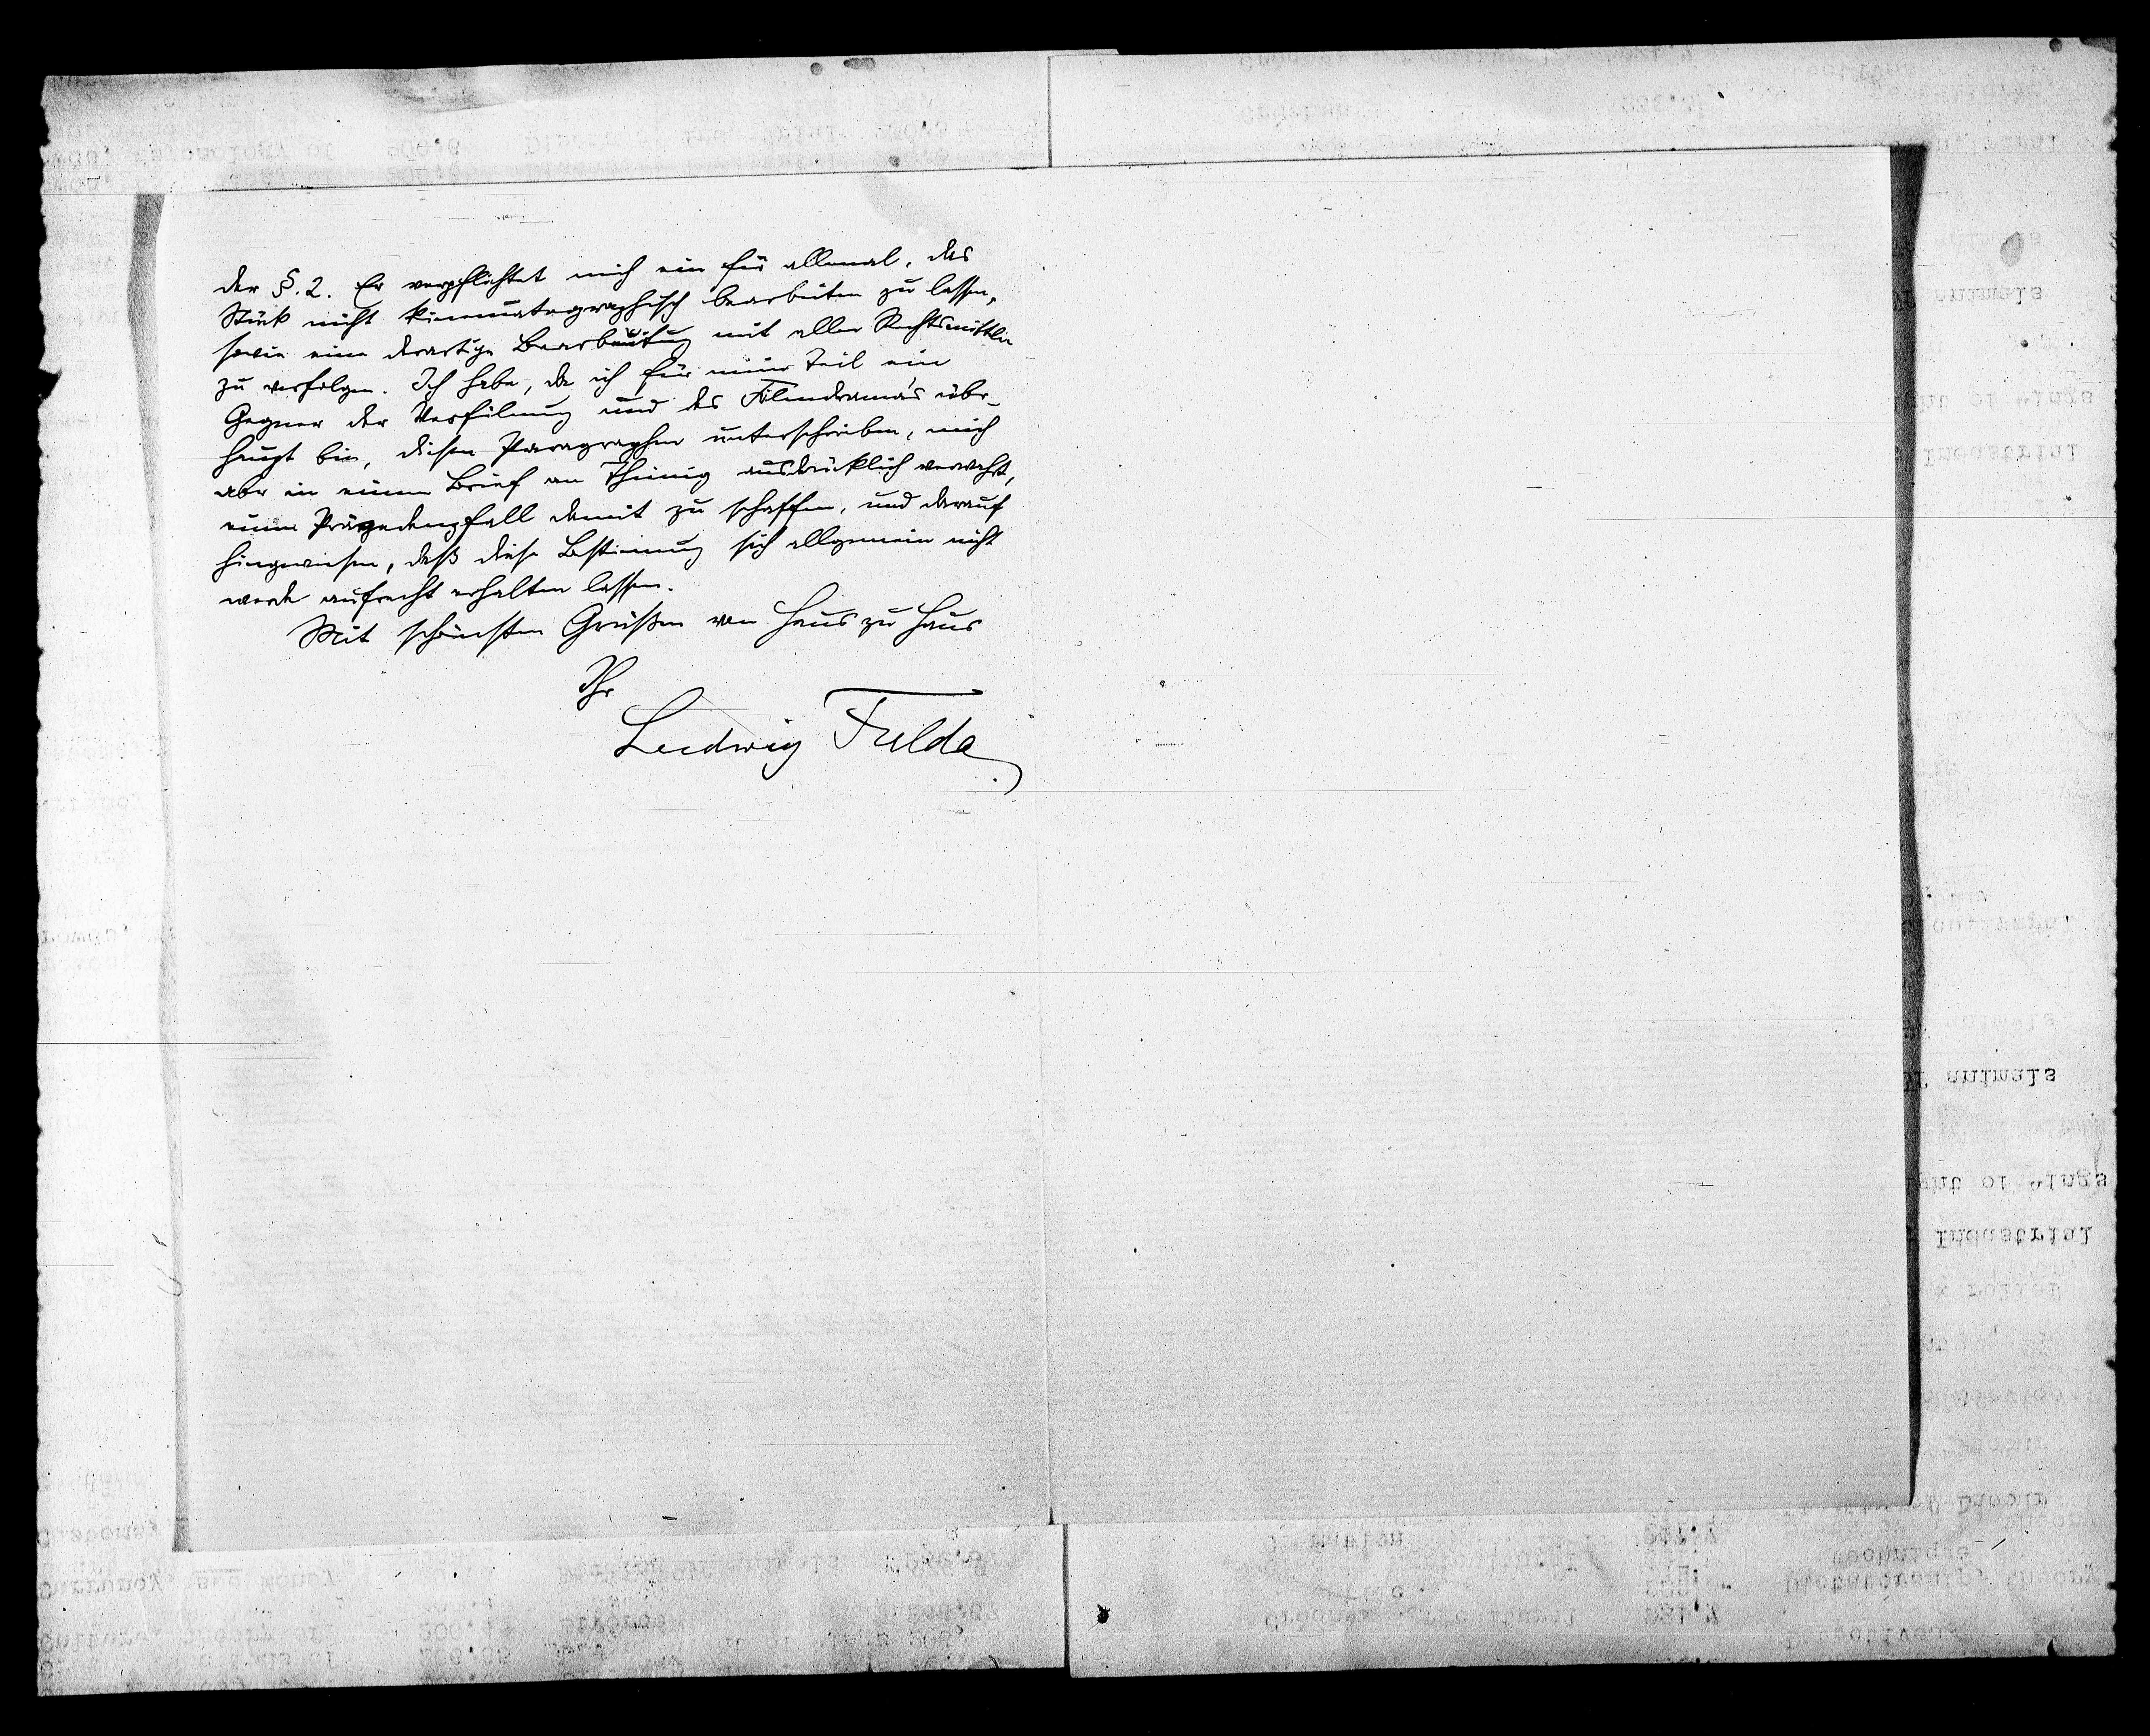 der §. 2. Er verpflichtet mich ein für allemal, das
Stück nicht kinematographisch bearbeiten zu lassen,
sowie eine derartige Bearbeitung mit allen Rechtsmitteln
zu verfolgen. Ich habe, da ich für mein Teil ein
Gegner der Verfilmung und des Filmdrama's über-
haupt bin, diesen Paragraphen unterschrieben, mich
aber in einem Brief an Thimig ausdrücklich verwahrt,
einen Präzedenzfall damit zu schaffen, und darauf
hingewiesen, daß diese Bestimmung sich allgemein nicht
werde aufrecht erhalten lassen.
Mit schönsten Grüßen von Haus zu Haus
Ihr
Ludwig Fulda